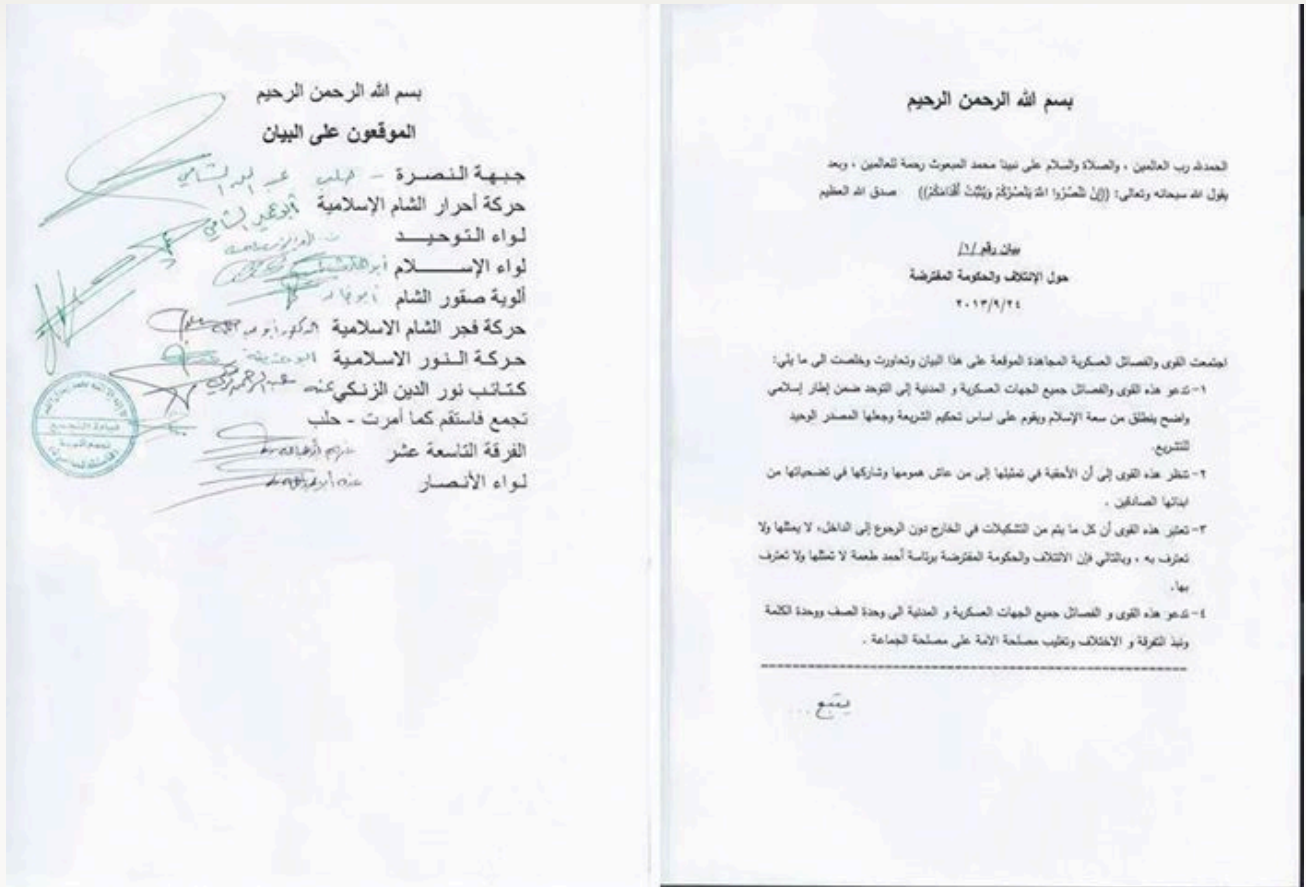 بسم الله الرحمن الرحيم
الحمدلله رب العالمين ، والصلاة والسلام على نبينا محمد المبعوث رحمة للعالمين ، وبعد
يقول الله سبحانه وتعالى: ((إِنْ تَنْصُرُوا اللهَ يَنْصُرْكُمْ وَيُثَبِّتْ أَقْدَامَكُمْ)) صدق الله العظيم
بيان رقم /١/
حول الإئتلاف والحكومة المفترضة
٢٠١٣/٩/٢٤
اجتمعت القوى والفصائل العسكرية المجاهدة الموقعة على هذا البيان وتحاورت وخلصت الى ما يلي:
١- تدعو هذه القوى والفصائل جميع الجهات العسكرية و المدنية إلى التوحد ضمن إطار إسلامي
واضح ينطلق من سعة الإسلام ويقوم على اساس تحكيم الشريعة وجعلها المصدر الوحيد
للتشريع.
٢- تنظر هذه القوى إلى أن الأحقية في تمثيلها إلى من عاش همومها وشاركها في تضحياتها من
ابنائها الصادقين .
٣- تعتبر هذه القوى أن كل ما يتم من التشكيلات في الخارج دون الرجوع إلى الداخل، لا يمثلها ولا
تعترف به ، وبالتالي فإن الائتلاف والحكومة المفترضة برئاسة أحمد طعمة لا تمثلها ولا تعترف
بها.
٤- تدعو هذه القوى و الفصائل جميع الجهات العسكرية و المدنية الى وحدة الصف ووحدة الكلمة
ونبذ التفرقة و الاختلاف وتغليب مصلحة الامة على مصلحة الجماعة .
يتبع ...
بسم الله الرحمن الرحيم
الموقعون على البيان
جبهة النصرة - حلب عبد الله الشامي
حركة أحرار الشام الإسلامية أبو عمير الشامي
لواء التوحيد
لواء الإسلام
ألوية صقور الشام
حركة فجر الشام الاسلامية
حركة النور الاسلامية
كتائب نور الدين الزنكي
تجمع فاستقم كما أمرت - حلب
الفرقة التاسعة عشر
لواء الأنصار